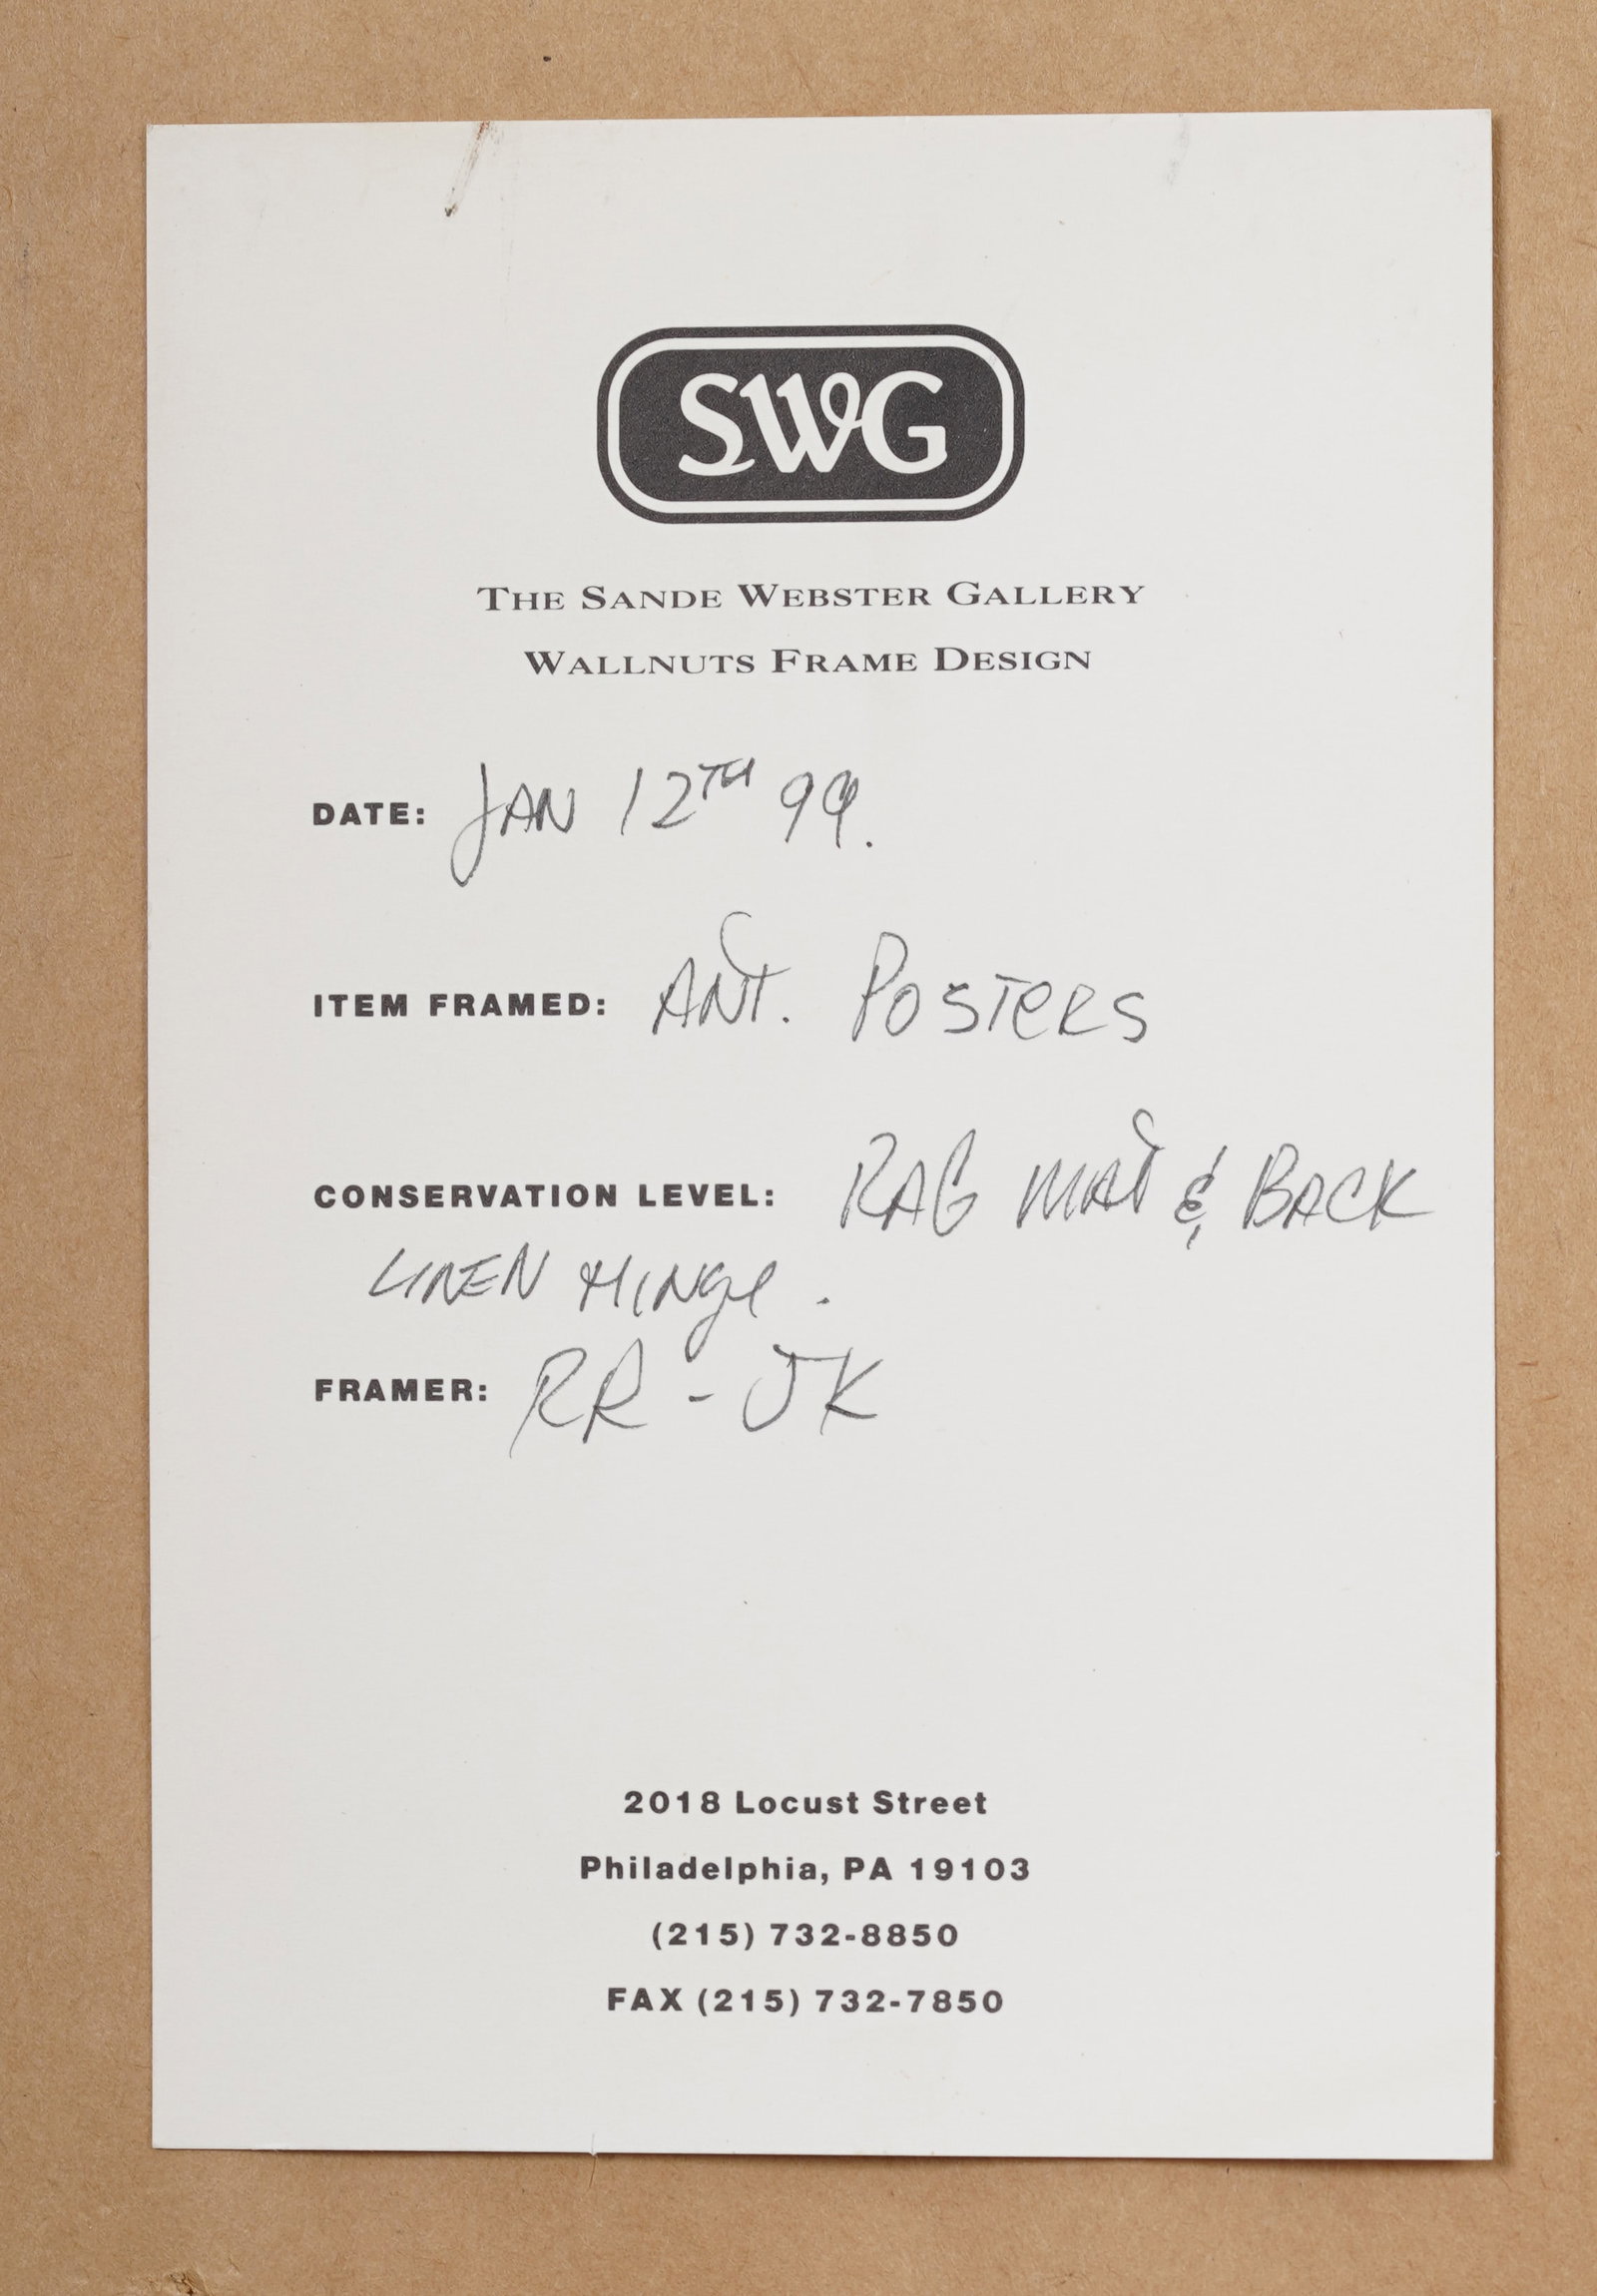 SWG
THE SANDE WEBSTER GALLERY
WALLNUTS FRAME DESIGN
DATE: JAN 12TH 99.
ITEM FRAMED: ANT. POSTERS
CONSERVATION LEVEL: RAG MAT & BACK
LINEN HINGE.
FRAMER: RR - JK
2018 Locust Street
Philadelphia, PA 19103
(215) 732-8850
FAX (215) 732-7850